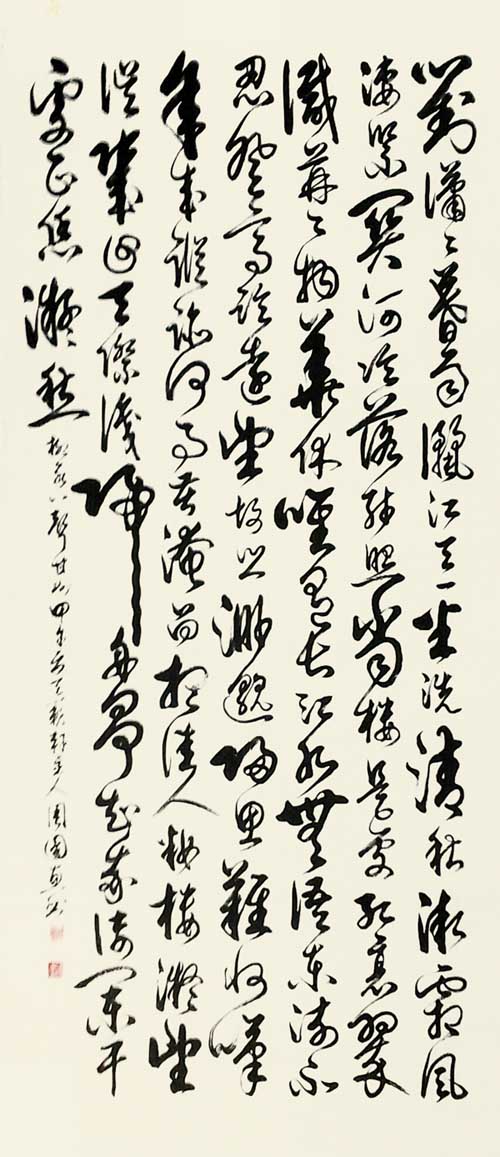 對瀟瀟暮雨灑江天一番洗清秋漸霜風
淒緊關河冷落殘照當樓是處紅衰翠
減苒苒物華休唯有長江水無語東流不
忍登高臨遠望故鄉渺邈歸思難收嘆
年來蹤跡何事苦淹留想佳人妝樓凝望
誤幾回天際識歸舟爭知我倚闌干
處正恁凝愁
柳永八聲甘州甲午主人周國